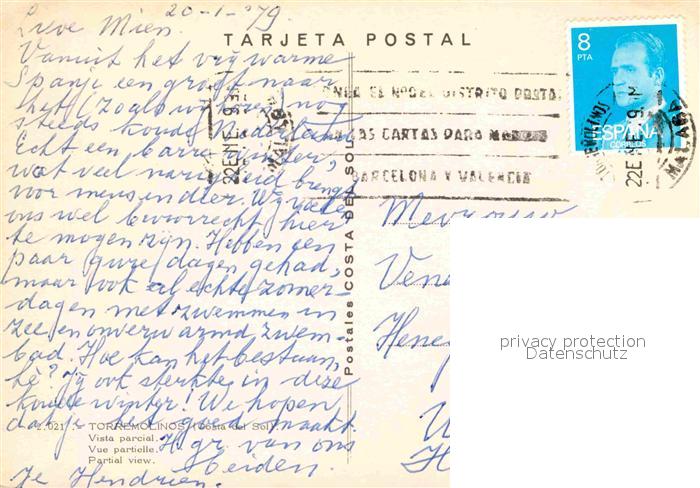 20-1-'79.
Lieve Mien.
Vanuit het vrij warme
Spanje een groet naar
het (zoals we horen) nog
steeds koude Nederland.
Echt een barre winter,
wat veel narigheid brengt
voor mens en dier. Wij voelen
ons wel bevoorrecht hier
te mogen zijn. Hebben een
paar gure dagen gehad,
maar ook al echte zomer-
dagen met zwemmen in
zee en onverwarmd zwem-
bad. Hoe kan het bestaan,
hè? Jij ook sterkte in deze
koude winter! We hopen
dat je het goed maakt.
H. gr. van ons
beiden.
Je Hendrien.
TARJETA POSTAL
8
PTA
ESPAÑA
CORREOS
EL Nº DEL DISTRITO POSTAL
LAS CARTAS PARA
BARCELONA Y VALENCIA
22 ENE 79
MALAGA
Postales COSTA DEL SOL
Mevrouw
privacy protection
Datenschutz
2.021 TORREMOLINOS (Costa del Sol).
Vista parcial.
Vue partielle.
Partial view.